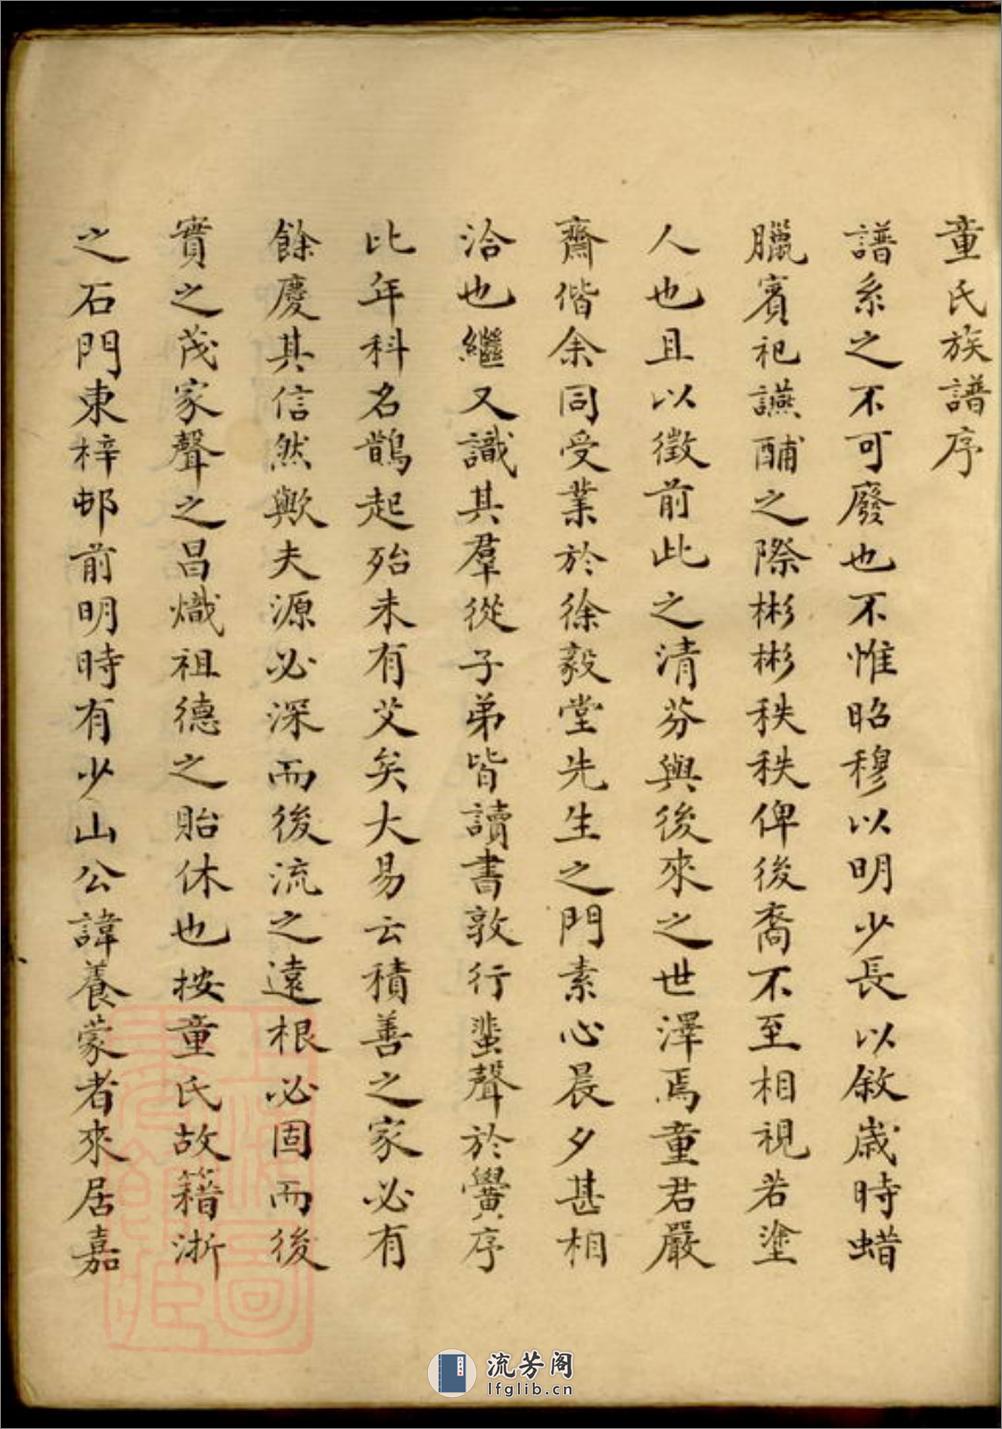 童氏族譜序
譜系之不可廢也不惟昭穆以明少長以敘歲時蜡
臘賓祀讌酺之際彬彬秩秩俾後裔不至相視若塗
人也且以徵前此之清芬與後來之世澤焉童君嚴
齋偕余同受業於徐毅堂先生之門素心晨夕甚相
洽也繼又識其羣從子弟皆讀書敦行蜚聲於黌序
比年科名鵲起殆未有艾矣大易云積善之家必有
餘慶其信然歟夫源必深而後流之遠根必固而後
實之茂家聲之昌熾祖德之貽休也按童氏故籍浙
之石門東梓邨前明時有少山公諱養蒙者來居嘉
流芳阁
lfglib.cn